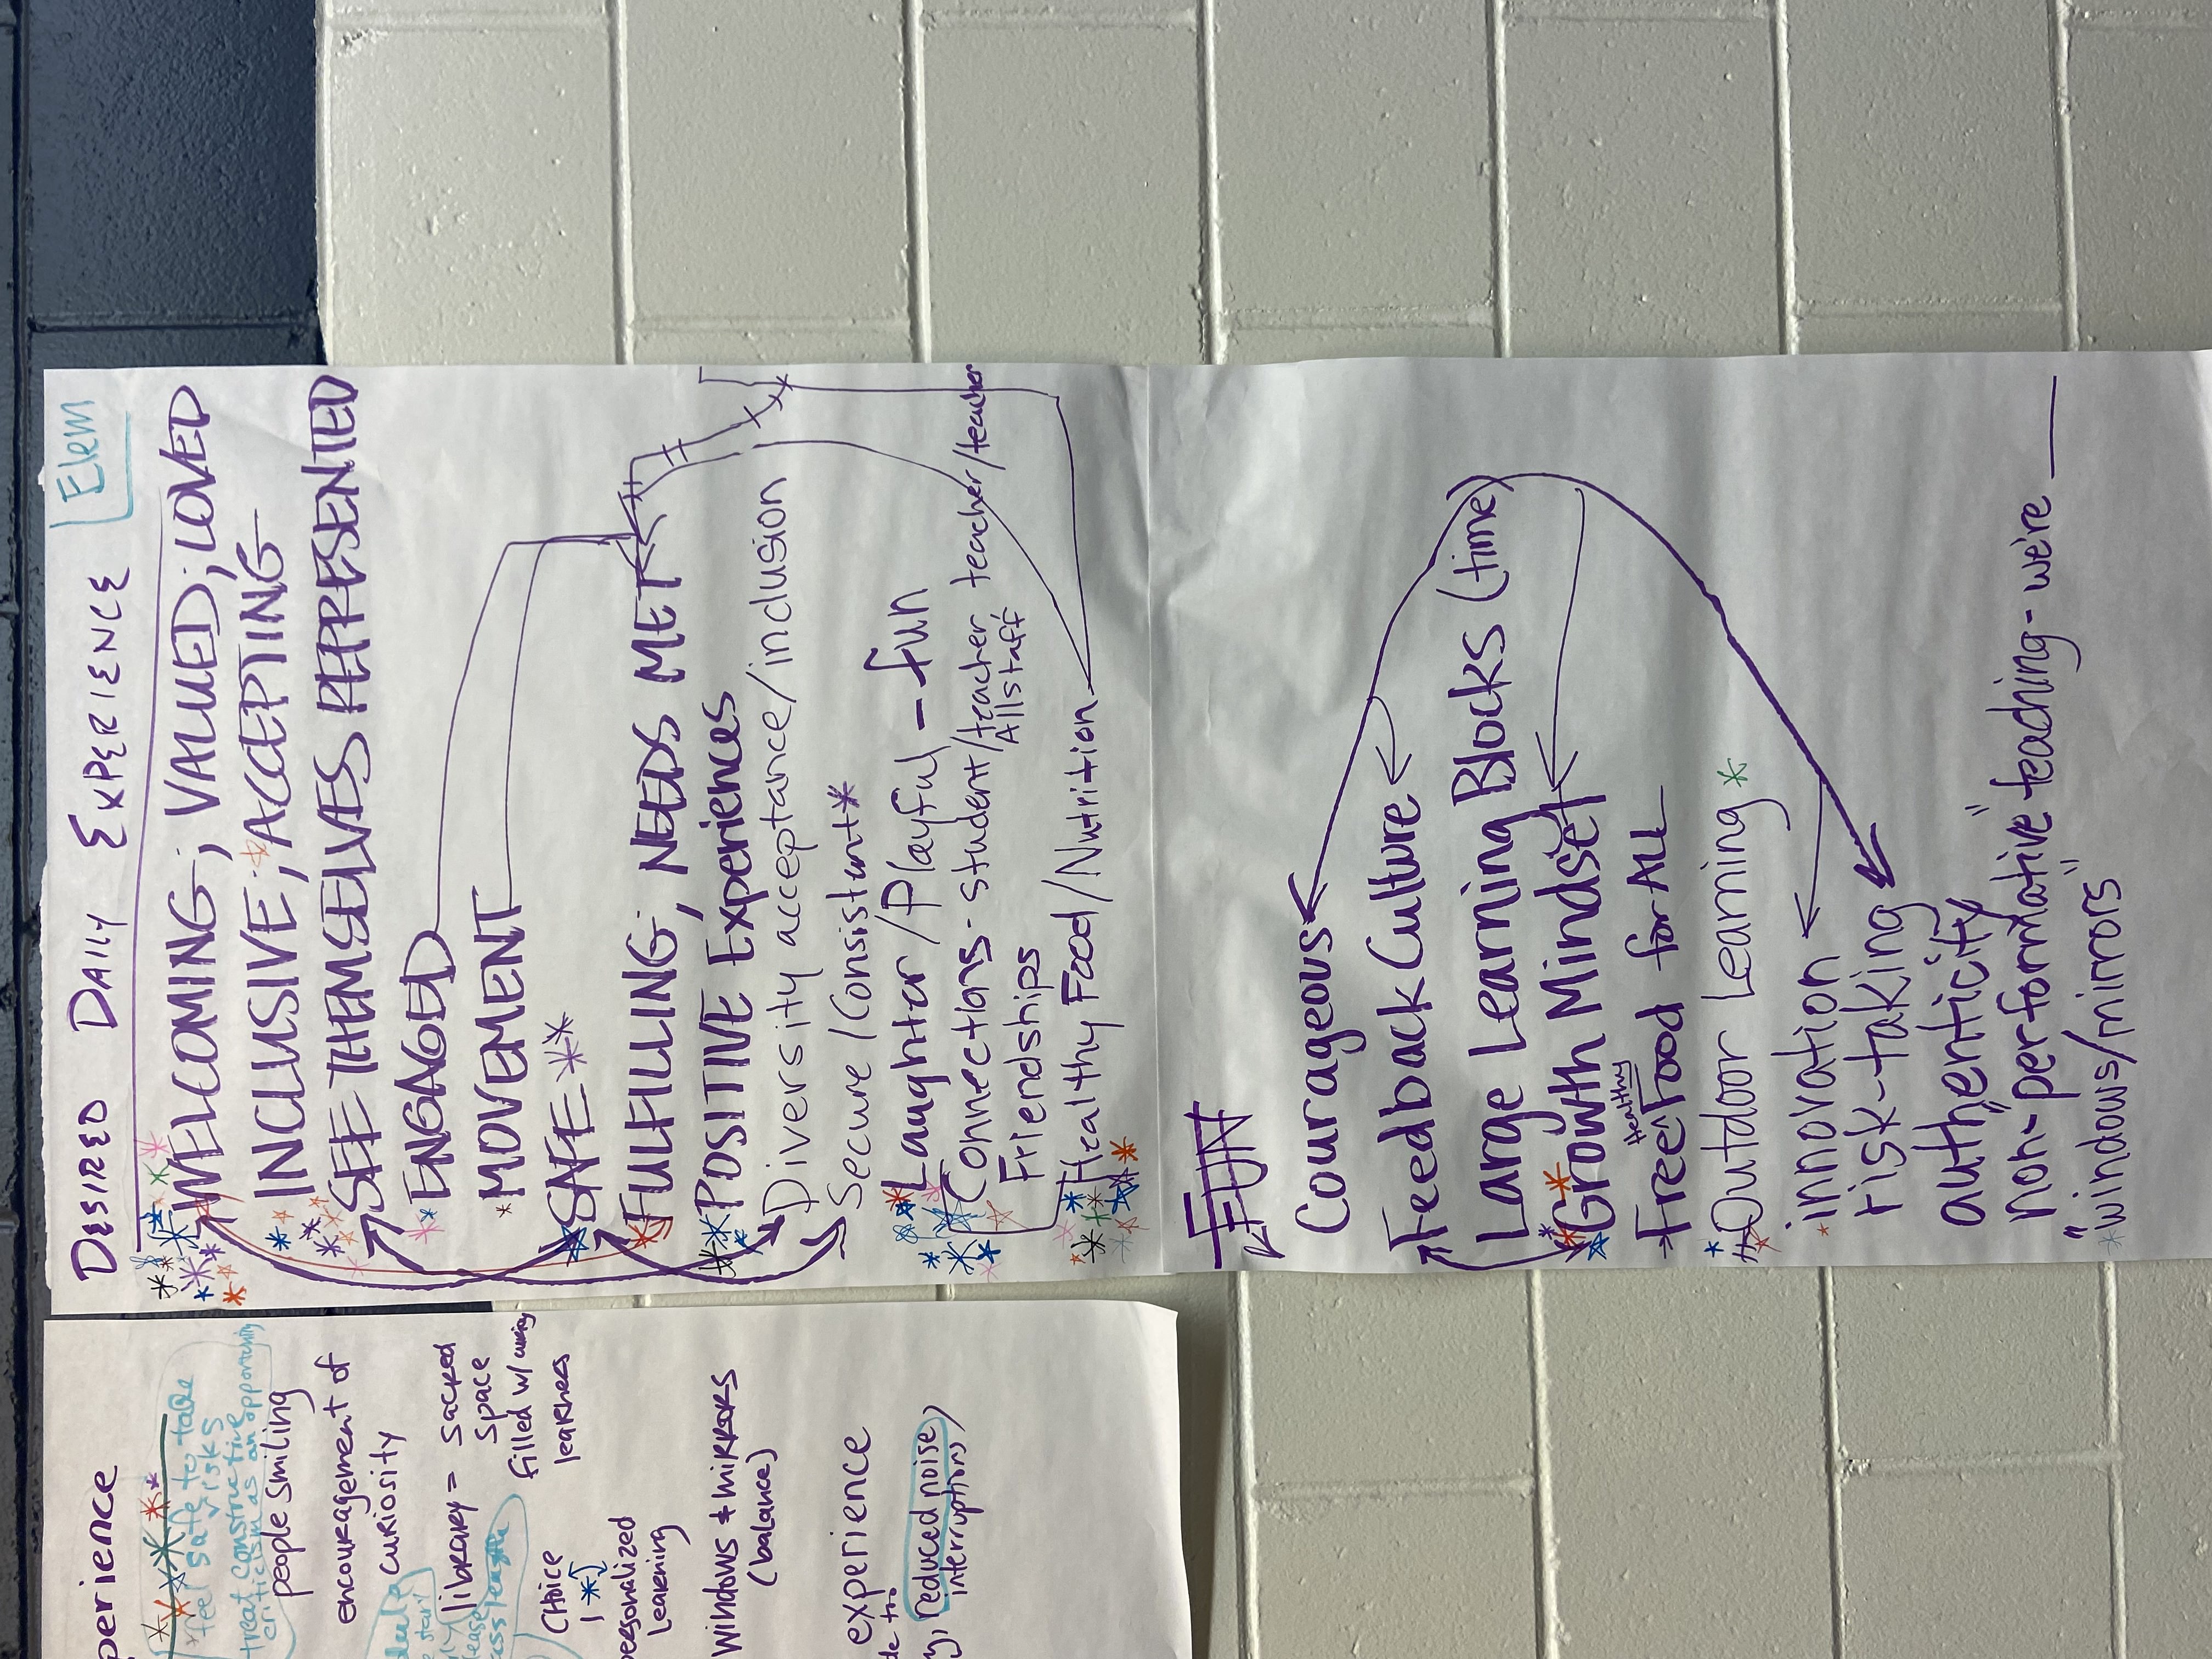 perience
feel safe to take
risks
treat constructive
criticism as an opportunity
people smiling
encouragement of
curiosity
library = sacred
space
filled w/
learners
CHOICE
personalized
Learning
WINDOWS & MIRRORS
(balance)
experience
reduced noise
interruptions)
DESIRED DAILY EXPERIENCE
Elem
WELCOMING; VALUED; LOVED
INCLUSIVE; ACCEPTING
SEE THEMSELVES REPRESENTED
ENGAGED
MOVEMENT
SAFE
FULFILLING; NEEDS MET
POSITIVE Experiences
Diversity acceptance/inclusion
Secure/Consistant
Laughter/Playful - fun
Connections - student/teacher teacher/teacher
All staff
Friendships
Healthy Food/Nutrition
FUN
Courageous
Feedback Culture
Large Learning Blocks (time)
Growth Mindset
Healthy
Free Food for ALL
Outdoor Learning
innovation
risk-taking
authenticity
non-"performative" teaching - we're ___
"windows/mirrors"